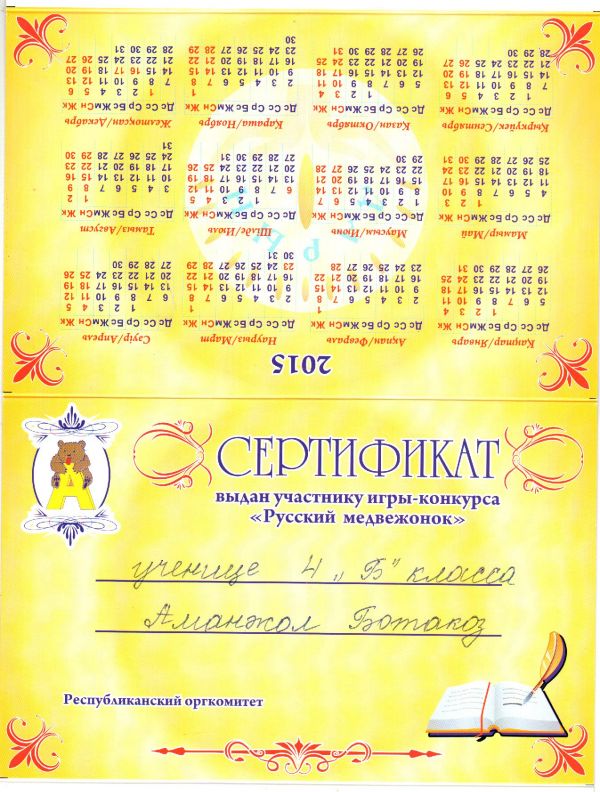 2015
Қаңтар/Январь
Дс Сс Ср Бс Жм Сн Жк
1 2 3 4
5 6 7 8 9 10 11
12 13 14 15 16 17 18
19 20 21 22 23 24 25
26 27 28 29 30 31
Ақпан/Февраль
Дс Сс Ср Бс Жм Сн Жк
1
2 3 4 5 6 7 8
9 10 11 12 13 14 15
16 17 18 19 20 21 22
23 24 25 26 27 28
Наурыз/Март
Дс Сс Ср Бс Жм Сн Жк
1
2 3 4 5 6 7 8
9 10 11 12 13 14 15
16 17 18 19 20 21 22
23 24 25 26 27 28 29
30 31
Сәуір/Апрель
Дс Сс Ср Бс Жм Сн Жк
1 2 3 4 5
6 7 8 9 10 11 12
13 14 15 16 17 18 19
20 21 22 23 24 25 26
27 28 29 30
Мамыр/Май
Дс Сс Ср Бс Жм Сн Жк
1 2 3
4 5 6 7 8 9 10
11 12 13 14 15 16 17
18 19 20 21 22 23 24
25 26 27 28 29 30 31
Маусым/Июнь
Дс Сс Ср Бс Жм Сн Жк
1 2 3 4 5 6 7
8 9 10 11 12 13 14
15 16 17 18 19 20 21
22 23 24 25 26 27 28
29 30
Шілде/Июль
Дс Сс Ср Бс Жм Сн Жк
1 2 3 4 5
6 7 8 9 10 11 12
13 14 15 16 17 18 19
20 21 22 23 24 25 26
27 28 29 30 31
Тамыз/Август
Дс Сс Ср Бс Жм Сн Жк
1 2
3 4 5 6 7 8 9
10 11 12 13 14 15 16
17 18 19 20 21 22 23
24 25 26 27 28 29 30
31
Қыркүйек/Сентябрь
Дс Сс Ср Бс Жм Сн Жк
1 2 3 4 5 6
7 8 9 10 11 12 13
14 15 16 17 18 19 20
21 22 23 24 25 26 27
28 29 30
Қазан/Октябрь
Дс Сс Ср Бс Жм Сн Жк
1 2 3 4
5 6 7 8 9 10 11
12 13 14 15 16 17 18
19 20 21 22 23 24 25
26 27 28 29 30 31
Қараша/Ноябрь
Дс Сс Ср Бс Жм Сн Жк
1
2 3 4 5 6 7 8
9 10 11 12 13 14 15
16 17 18 19 20 21 22
23 24 25 26 27 28 29
30
Желтоқсан/Декабрь
Дс Сс Ср Бс Жм Сн Жк
1 2 3 4 5 6
7 8 9 10 11 12 13
14 15 16 17 18 19 20
21 22 23 24 25 26 27
28 29 30 31
А
СЕРТИФИКАТ
выдан участнику игры-конкурса
«Русский медвежонок»
ученице 4 „Б" класса
Аманжол Ботакоз
Республиканский оргкомитет